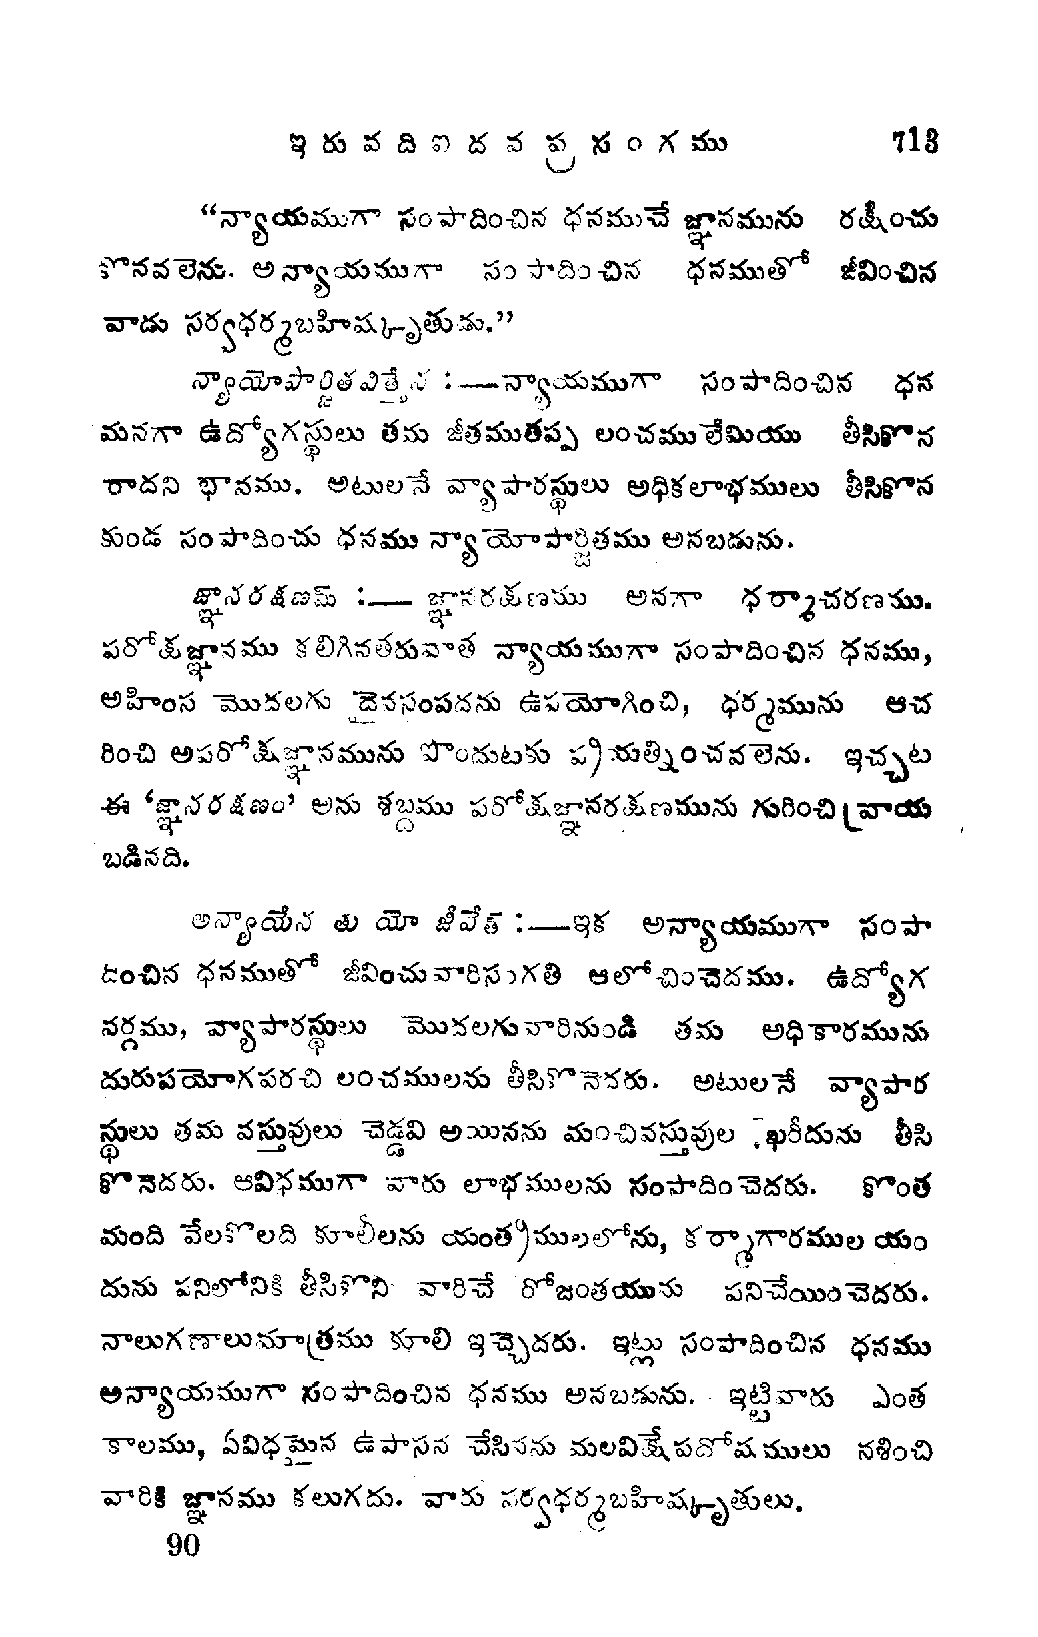 ఇరువదిఐదవప్రసంగము 713
“న్యాయముగా సంపాదించిన ధనముచే జ్ఞానమును రక్షించు
కొనవలెను. అన్యాయముగా సంపాదించిన ధనముతో జీవించిన
వాడు సర్వధర్మబహిష్కృతుడు.”
న్యాయోపార్జితవిత్తేన :—న్యాయముగా సంపాదించిన ధన
మనగా ఉద్యోగస్థులు తమ జీతముతప్ప లంచములేమియు తీసికొన
రాదని భావము. అటులనే వ్యాపారస్థులు అధికలాభములు తీసికొన
కుండ సంపాదించు ధనము న్యాయోపార్జితము అనబడును.
జ్ఞానరక్షణమ్ :— జ్ఞానరక్షణము అనగా ధర్మాచరణము.
పరోక్షజ్ఞానము కలిగినతరువాత న్యాయముగా సంపాదించిన ధనము,
అహింస మొదలగు దైవసంపదను ఉపయోగించి, ధర్మమును ఆచ
రించి అపరోక్షజ్ఞానమును పొందుటకు ప్రయత్నించవలెను. ఇచ్చట
ఈ ‘జ్ఞానరక్షణం’ అను శబ్దము పరోక్షజ్ఞానరక్షణమును గురించి వ్రాయ
బడినది.
అన్యాయేన తు యో జీవేత్ :—ఇక అన్యాయముగా సంపా
దించిన ధనముతో జీవించువారిసంగతి ఆలోచించెదము. ఉద్యోగ
వర్గము, వ్యాపారస్థులు మొదలగువారినుండి తమ అధికారమును
దురుపయోగపరచి లంచములను తీసికొనెదరు. అటులనే వ్యాపార
స్థులు తమ వస్తువులు చెడ్డవి అయినను మంచివస్తువుల ఖరీదును తీసి
కొనెదరు. ఆవిధముగా వారు లాభములను సంపాదించెదరు. కొంత
మంది వేలకొలది కూలీలను యంత్రములలోను, కర్మాగారములయం
దును పనిలోనికి తీసికొని వారిచే రోజంతయును పనిచేయించెదరు.
నాలుగణాలుమాత్రము కూలి ఇచ్చెదరు. ఇట్లు సంపాదించిన ధనము
అన్యాయముగా సంపాదించిన ధనము అనబడును. ఇట్టివారు ఎంత
కాలము, ఏవిధమైన ఉపాసన చేసినను మలవిక్షేపదోషములు నశించి
వారికి జ్ఞానము కలుగదు. వారు సర్వధర్మబహిష్కృతులు.
90